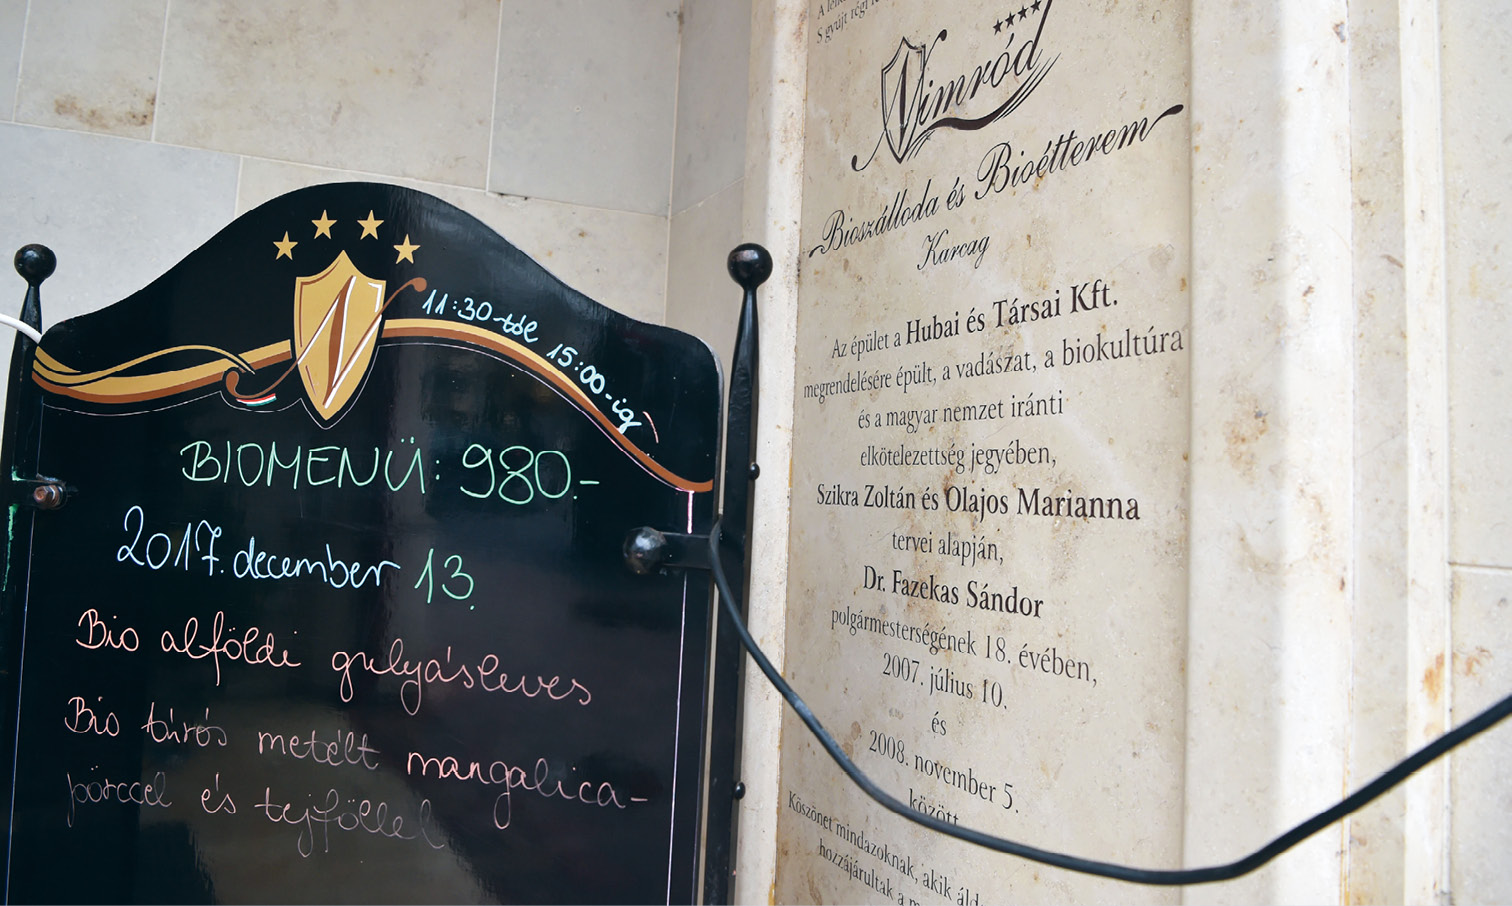 11:30-tól 15:00-ig
BIOMENÜ: 980.-
2017. december 13.
Bio alföldi gulyásleves
Bio túrós metélt mangalica-
pörccel és tejföllel
S gyűjt régi
Nimród
Bioszálloda és Bioétterem
Karcag
Az épület a Hubai és Társai Kft.
megrendelésére épült, a vadászat, a biokultúra
és a magyar nemzet iránti
elkötelezettség jegyében,
Szikra Zoltán és Olajos Marianna
tervei alapján,
Dr. Fazekas Sándor
polgármesterségének 18. évében,
2007. július 10.
és
2008. november 5.
között
Köszönet mindazoknak, akik
hozzájárultak a